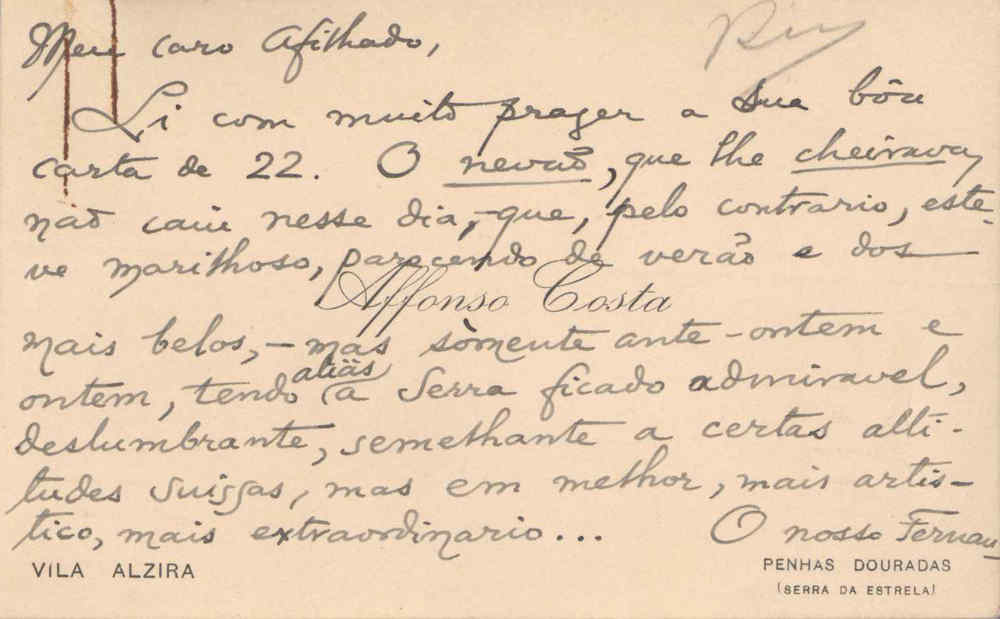 Meu caro Afilhado,
Li com muito prazer a sua bôa
carta de 22. O nevão, que lhe cheirava,
não caiu nesse dia, – que, pelo contrario, este-
ve marilhoso, parecendo de verão e dos
Affonso Costa
mais belos, – mas sòmente ante-ontem e
ontem, tendo aliás a Serra ficado admiravel,
deslumbrante, semelhante a certas alti-
tudes suissas, mas em melhor, mais artis-
tico, mais extraordinario... O nosso Fernan-
VILA ALZIRA
PENHAS DOURADAS
(SERRA DA ESTRELA)